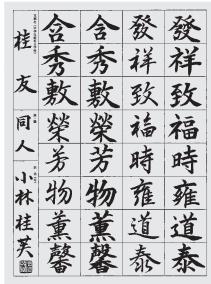 發祥致福時雍道泰
發祥致福時雍道泰
含秀敷榮芳物薰馨
含秀敷榮芳物薰馨
桂友同人 小林桂英